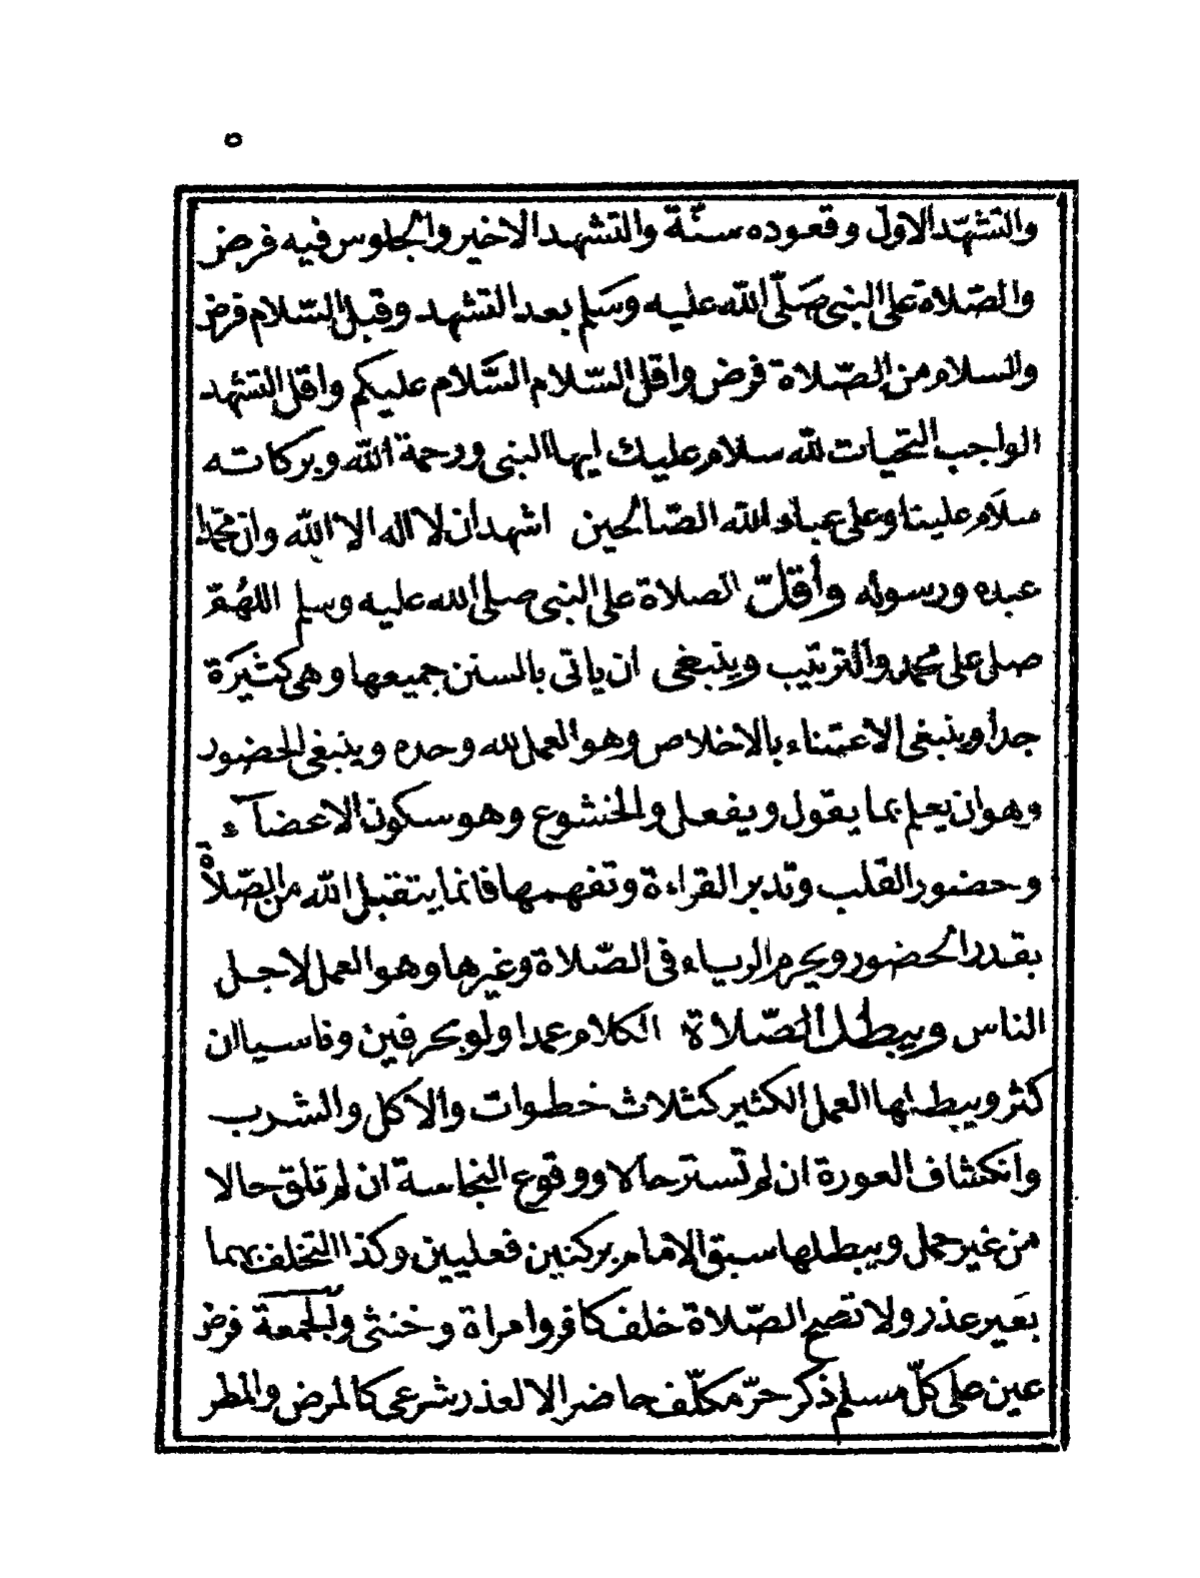 ٥
والتشهّد الاول وقعوده سنّة والتشهد الاخير والجلوس فيه فرض
والصّلاة على النبى صَلّى الله عليه وَسَلم بعد التشهد وقبل السّلام فرض
والسلام من الصّلاة فرض واقل السّلام السَّلام عليكم واقل التشهد
الواجب التحيات لله سلام عليك ايها النبى ورحمة الله وبركاته
سلاَم علينا وعلى عباد الله الصّالحين اشهد ان لا اله الا الله وان محمّدا
عبده ورسوله وأقلّ الصلاة على النبى صلى الله عليه وسلم اللهُمّ
صلى على محمد والترتيب وينبغى ان ياتى بالسنن جميعها وهى كثيَرة
جدا وينبغى الاعتناء بالاخلاص وهو العمل لله وحده وينبغى الحضور
وهو ان يعلم بما يقول ويفعل والخشوع وهو سكون الاعضآء
وحضور القلب وتدبر القراءة وتفهمها فانما يتقبل الله من الصّلاة
بقدر الحضور ويحرم الرياء فى الصّلاة وغيرها وهو العمل لاجل
الناس ويبطل الصّلاة الكلام عمدا ولو بحرفين وناسيا ان
كثر ويبطلها العمل الكثير كثلاث خطوات والاكل والشرب
وانكشاف العورة ان لم تستر حالا ووقوع النجاسة ان لم تلق حالا
من غير حمل ويبطلها سبق الامام بركنين فعليين وكذا التخلف بهما
بغَير عذر ولا تصح الصّلاة خلف كافر وامراة وخنثى والجمعة فرض
عين على كلّ مسلم ذكر حرّ مكلّف حاضر الا لعذر شرعى كالمرض والمطر